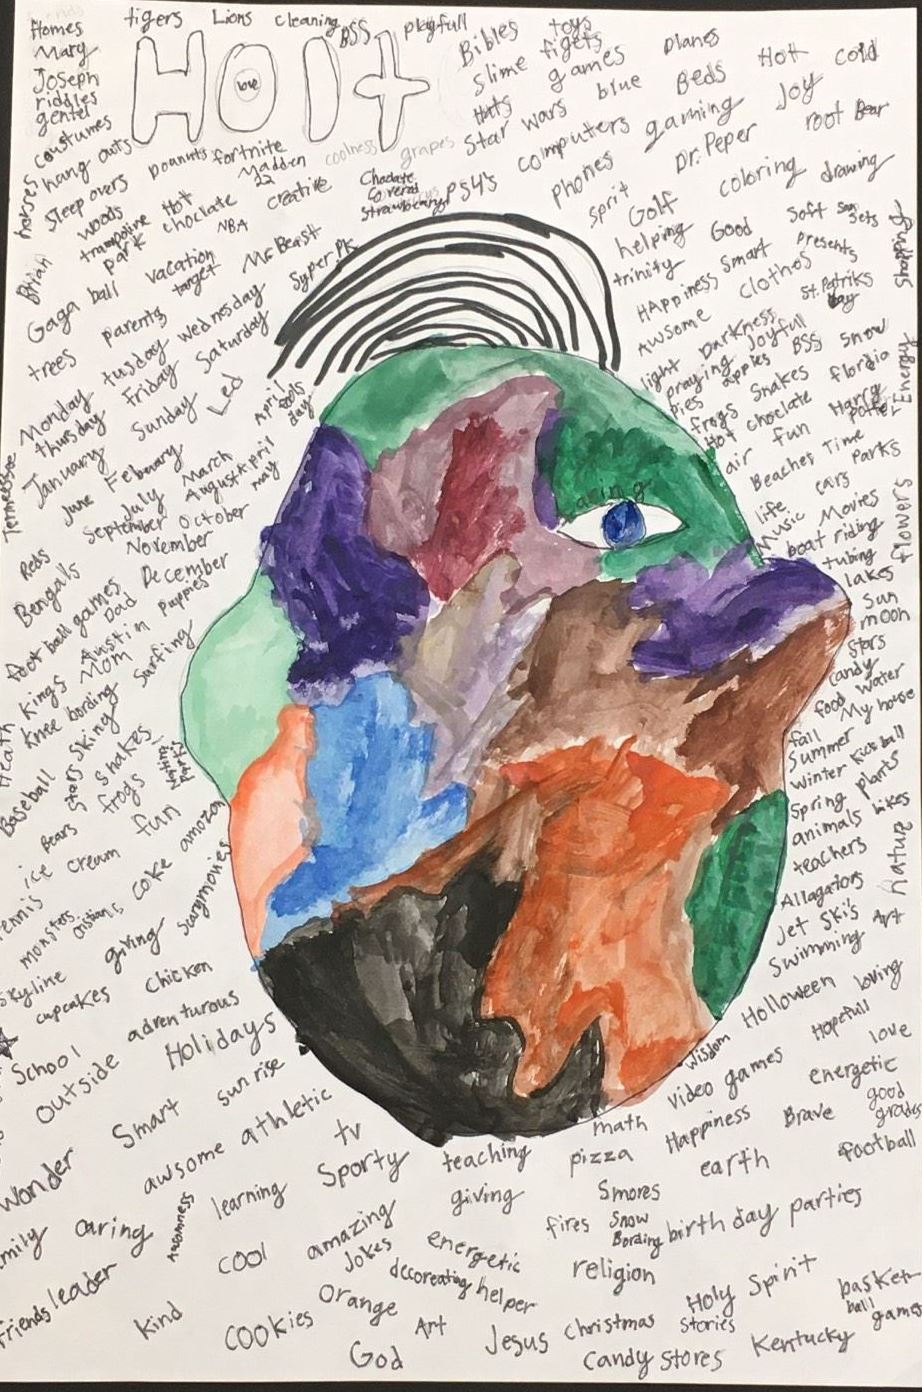 friends
Homes
tigers
Lions
cleaning
BSS
playfull
Mary
Joseph
riddles
gentel
costumes
HOlt
love
Bibles
toys
slime
figets
games
planes
Hot
cold
Hats
blue
Beds
Joy
Star wars
computers
gaming
root Bear
hang outs
poanuts
fortnite
Madden
22
coolness
grapes
phones
Dr. Peper
horses
Sleep overs
Hot
choclate
creative
Choclate
Coverd
Strawberarys
PS4's
sprit
Golf
coloring
drawing
woods
trampoline
park
NBA
Mr Beast
helping
Good
Soft
Sun
Sets
Brian
Gaga ball
vacation
target
Syper Pk
trinity
Smart
presents
Shopping
HAppiness
clothos
St. Patriks
Day
trees
parents
wednesday
Awsome
Darkness
Monday
tuesday
Saturday
light
praying
Joyfull
BSS
Snow
Thursday
Friday
Led
April
fools
day
pies
apples
floridia
Energy
January
Sunday
frogs
Snakes
Harry
potter
Hot choclate
Tennessee
June
Feburary
March
April
air
fun
July
August
may
Beaches
Time
September
October
cars
Parks
November
life
Music
Movies
flowers
Reds
Bengals
December
boat riding
tubing
caring
foot ball games
Dad
Puppies
lakes
Austin
Sun
moon
Mom
Surfiing
stars
Kings
candy
Knee bording
food
Water
Heath
Skiing
My house
stars
Snakes
fall
Summer
Kick ball
Baseball
frogs
winter
plants
Bears
fun
Spring
bikes
ice cream
coke
amozon
animals
teachers
Nature
tennis
Allagators
monsters
giving
Jet Ski's
Art
Skyline
cupcakes
chicken
Swimming
School
adrenturous
Holloween
loving
Outside
Holidays
wisdom
Hopefull
love
sun rise
video games
energetic
Smart
athletic
math
Happiness
Brave
good
grades
Wonder
awsome
tv
teaching
pizza
earth
football
Sporty
learning
giving
Smores
caring
Awsomness
amazing
fires
Snow
Bording
birth day parties
cool
Jokes
energetic
religion
Friends
leader
decoreating
helper
Holy
Spirit
basket
ball
games
kind
cookies
Orange
Art
Jesus
christmas
stories
Kentucky
God
candy stores